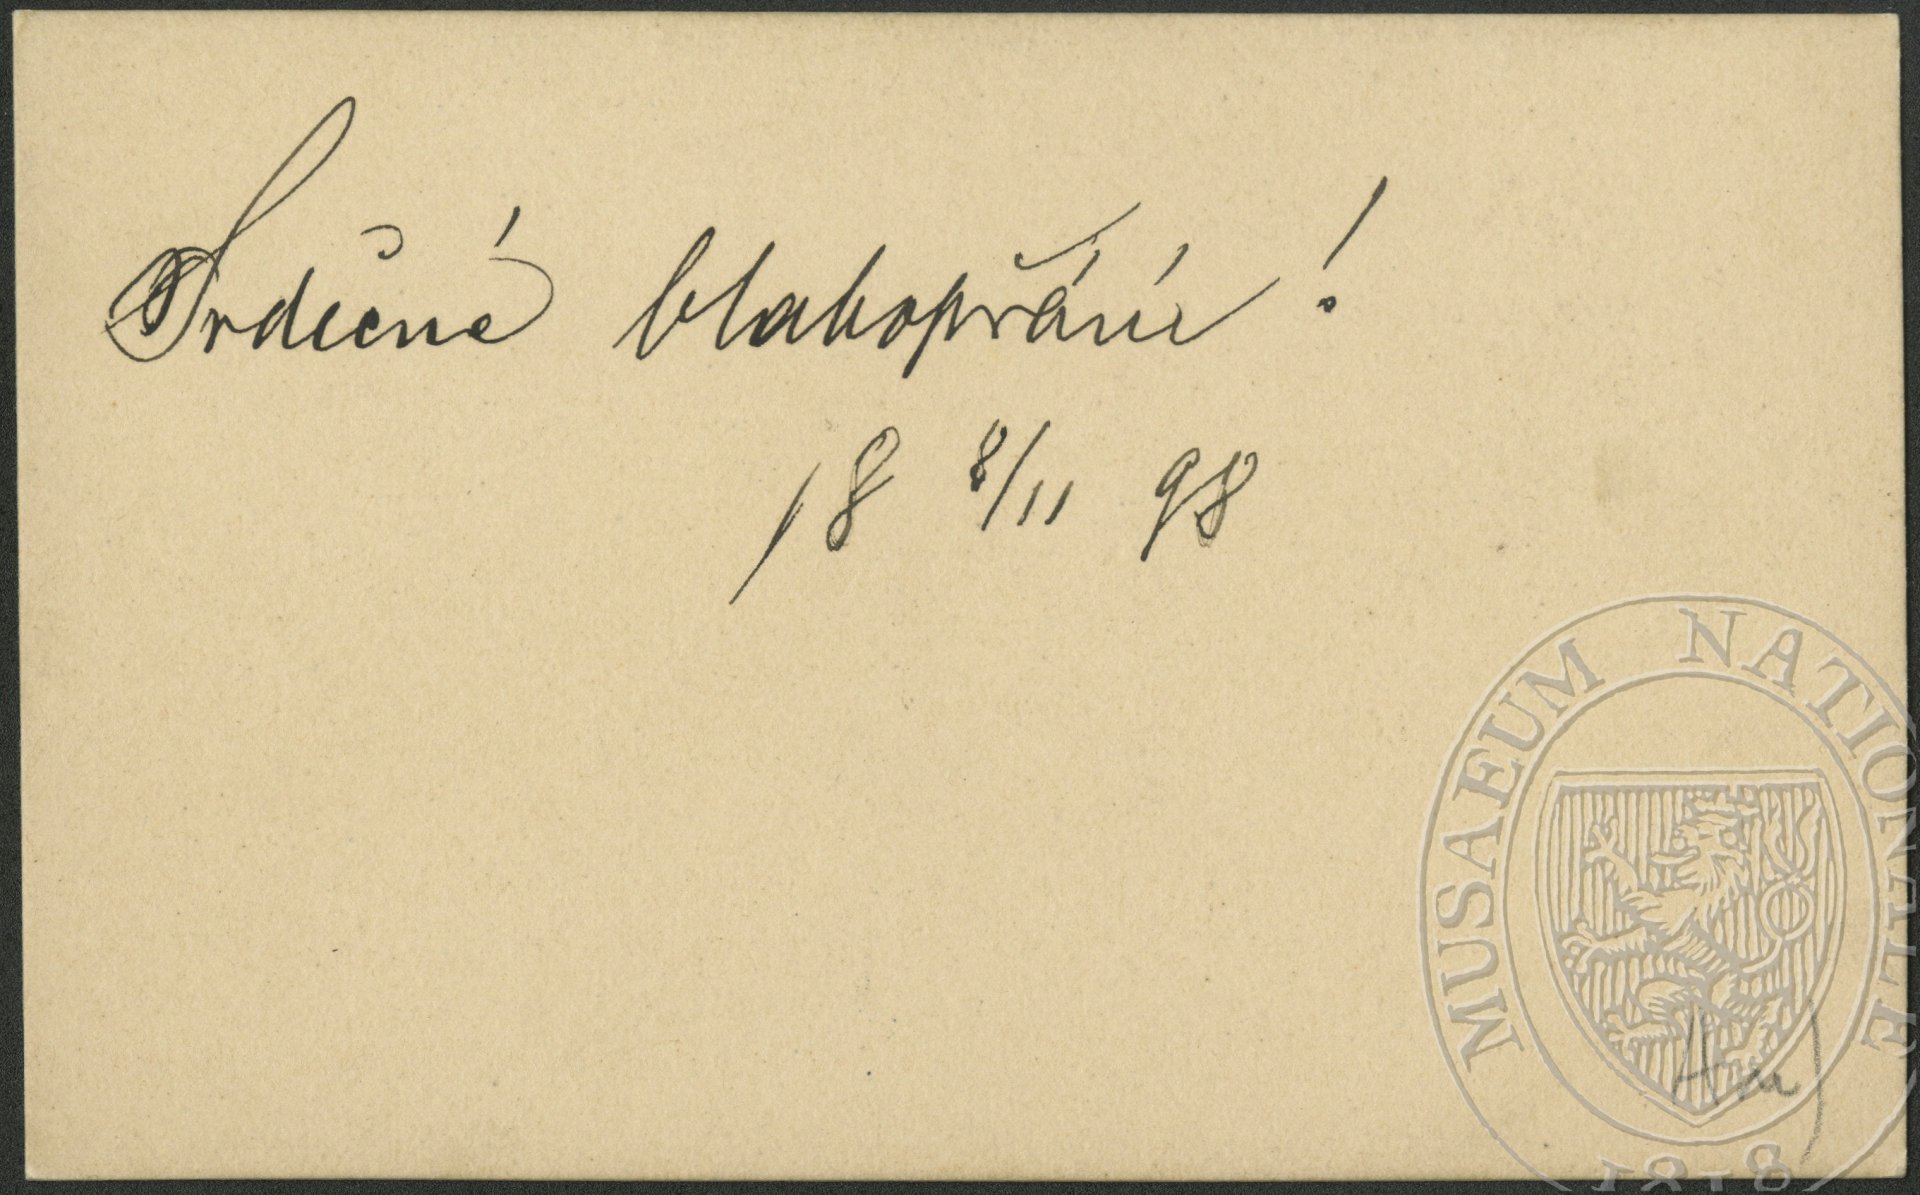 Srdečné blahopřání!
18 8/11 98
MUSAEUM NATIONALE
1818